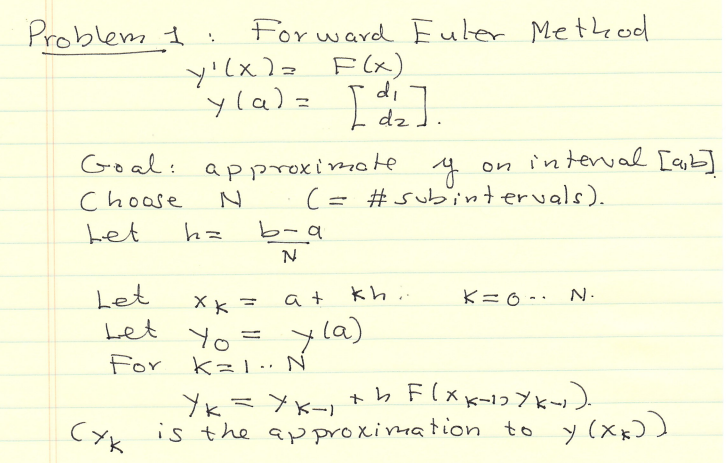 Problem 1 : Forward Euler Method
y'(x) = F(x)
y(a) = [d₁ d₂].
Goal: approximate y on interval [a,b]
Choose N (= # subintervals).
Let h = (b-a)/N
Let xₖ = a + kh. k=0.. N.
Let y₀ = y(a)
For k=1.. N
yₖ = yₖ₋₁ + h F(xₖ₋₁, yₖ₋₁).
(yₖ is the approximation to y(xₖ))